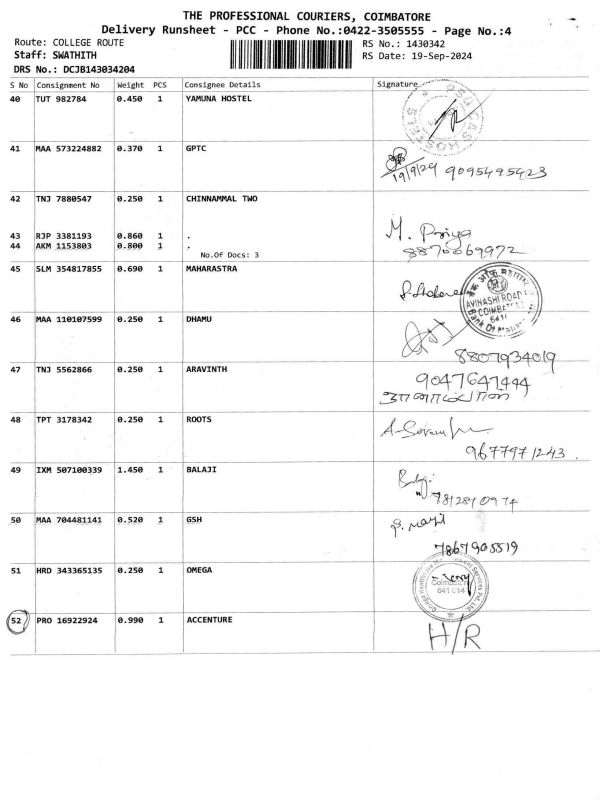 THE PROFESSIONAL COURIERS, COIMBATORE
Delivery Runsheet - PCC - Phone No.:0422-3505555 - Page No.:4
Route: COLLEGE ROUTE RS No.: 1430342
Staff: SWATHITH RS Date: 19-Sep-2024
DRS No.: DCJB143034204
S No Consignment No Weight PCS Consignee Details Signature
40 TUT 982784 0.450 1 YAMUNA HOSTEL
41 MAA 573224882 0.370 1 GPTC
19/9/29 9095495423
42 TNJ 7880547 0.250 1 CHINNAMMAL TWO
43 RJP 3381193 0.860 1 . M. Priya
44 AKM 1153803 0.800 1 . 8870069972
No.Of Docs: 3
45 SLM 354817855 0.690 1 MAHARASTRA
AVINASHI ROAD
COIMBATORE
46 MAA 110107599 0.250 1 DHAMU
8807934019
47 TNJ 5562866 0.250 1 ARAVINTH
9047647444
48 TPT 3178342 0.250 1 ROOTS
9677971243.
49 IXM 507100339 1.450 1 BALAJI
Balaji
7812810974
50 MAA 704481141 0.520 1 GSH
7867905519
51 HRD 343365135 0.250 1 OMEGA
Coimbatore
641 014
52 PRO 16922924 0.990 1 ACCENTURE
H/R